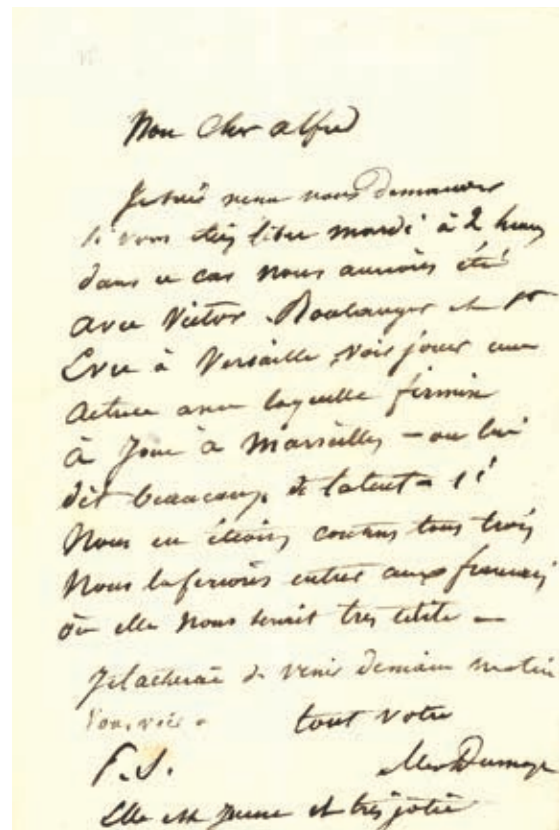 Mon Cher Alfred
Je suis venu vous demander
si vous étiez libre mardi à 2 heures
dans ce cas nous aurions été
avec Victor, Boulanger et
à Versaille voir jouer une
actrice avec laquelle firmin
à Joué à Marseilles — on lui
dit beaucoup de talent
Nous en étions contens tous trois
Nous la ferions entrer aux francais
où elle nous serait très utile —
Je tacherai de venir demain matin
vous voir — tout votre
P.S. Alex Dumas
Elle est jeune et très jolie